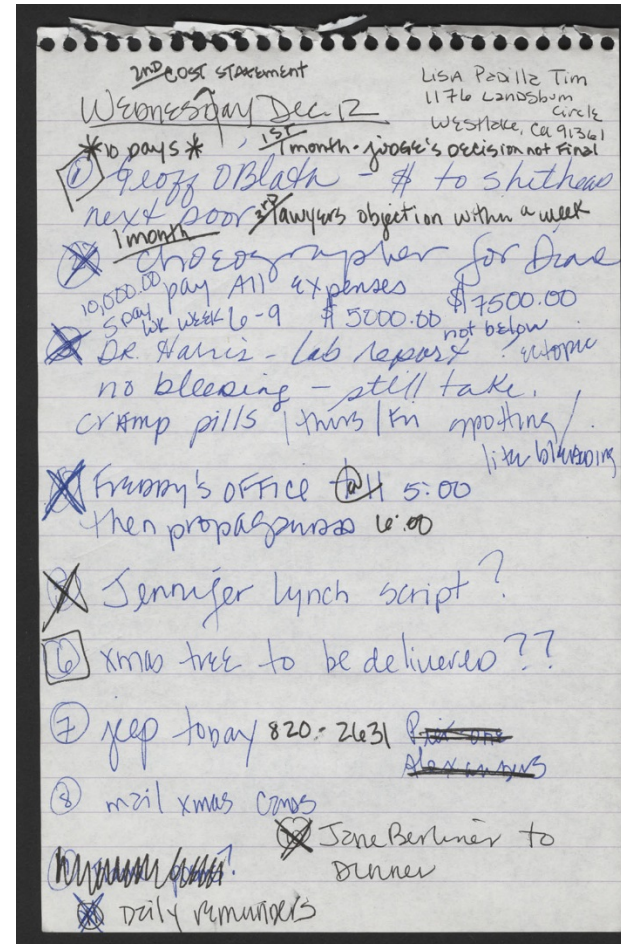 2ND COST STATEMENT
Lisa Padilla Tim
1176 Landsburn Circle
Westlake, Ca 91361
Wednesday Dec. 12
*10 DAYS* 1ST 1 month - JUDGE'S DECISION NOT Final
① Geoff O - $ to shithead
next door 3rd lawyers objection within a week
1 month
choreographer for Diane
10,000.00 pay All expenses $7500.00
5 Day WK WEEK 6-9 $5000.00 not below
Dr. Harris - lab report ? ectopic
no bleeding - still take
cramp pills / thurs / fri spotting /
lite bleeding
Freddy's OFFICE @ 5:00
then propaganda 6:00
Jennifer Lynch script?
⑥ xmas tree to be delivered??
⑦ jeep today 820-2631
⑧ mail xmas cards
Jane Berliner to
Dinner
Daily reminders